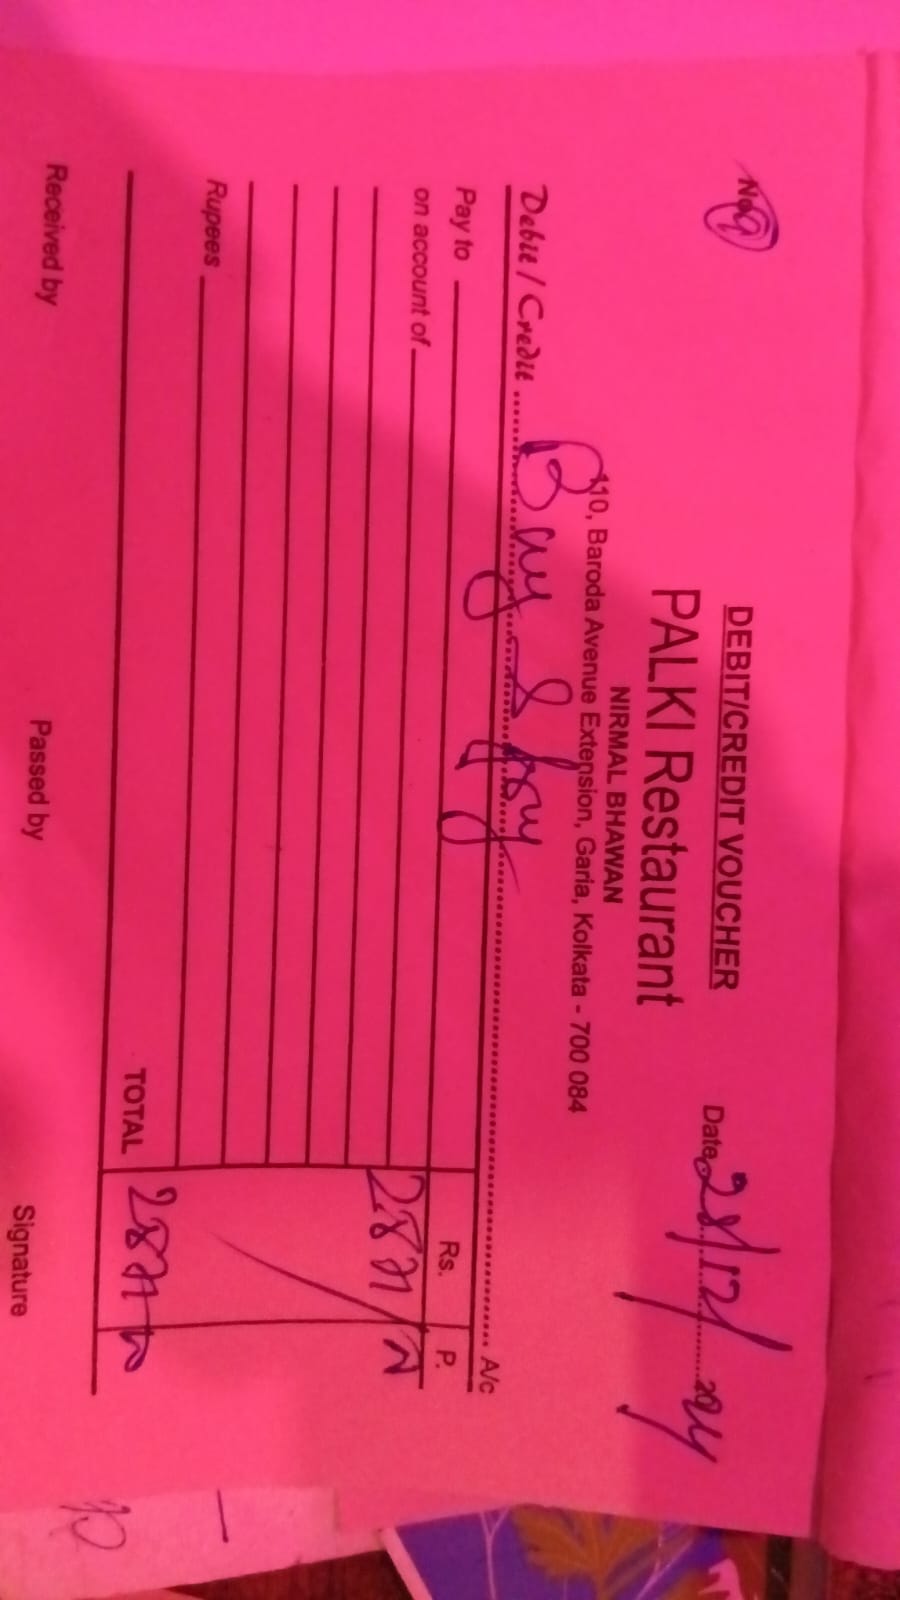 DEBIT/CREDIT VOUCHER
No. 9
Date 28/12/2024
PALKI Restaurant
NIRMAL BHAWAN
110, Baroda Avenue Extension, Garia, Kolkata - 700 084
Debit / Credit A/c
Pay to
Rs. P.
on account of
Rupees
TOTAL
Received by Passed by Signature